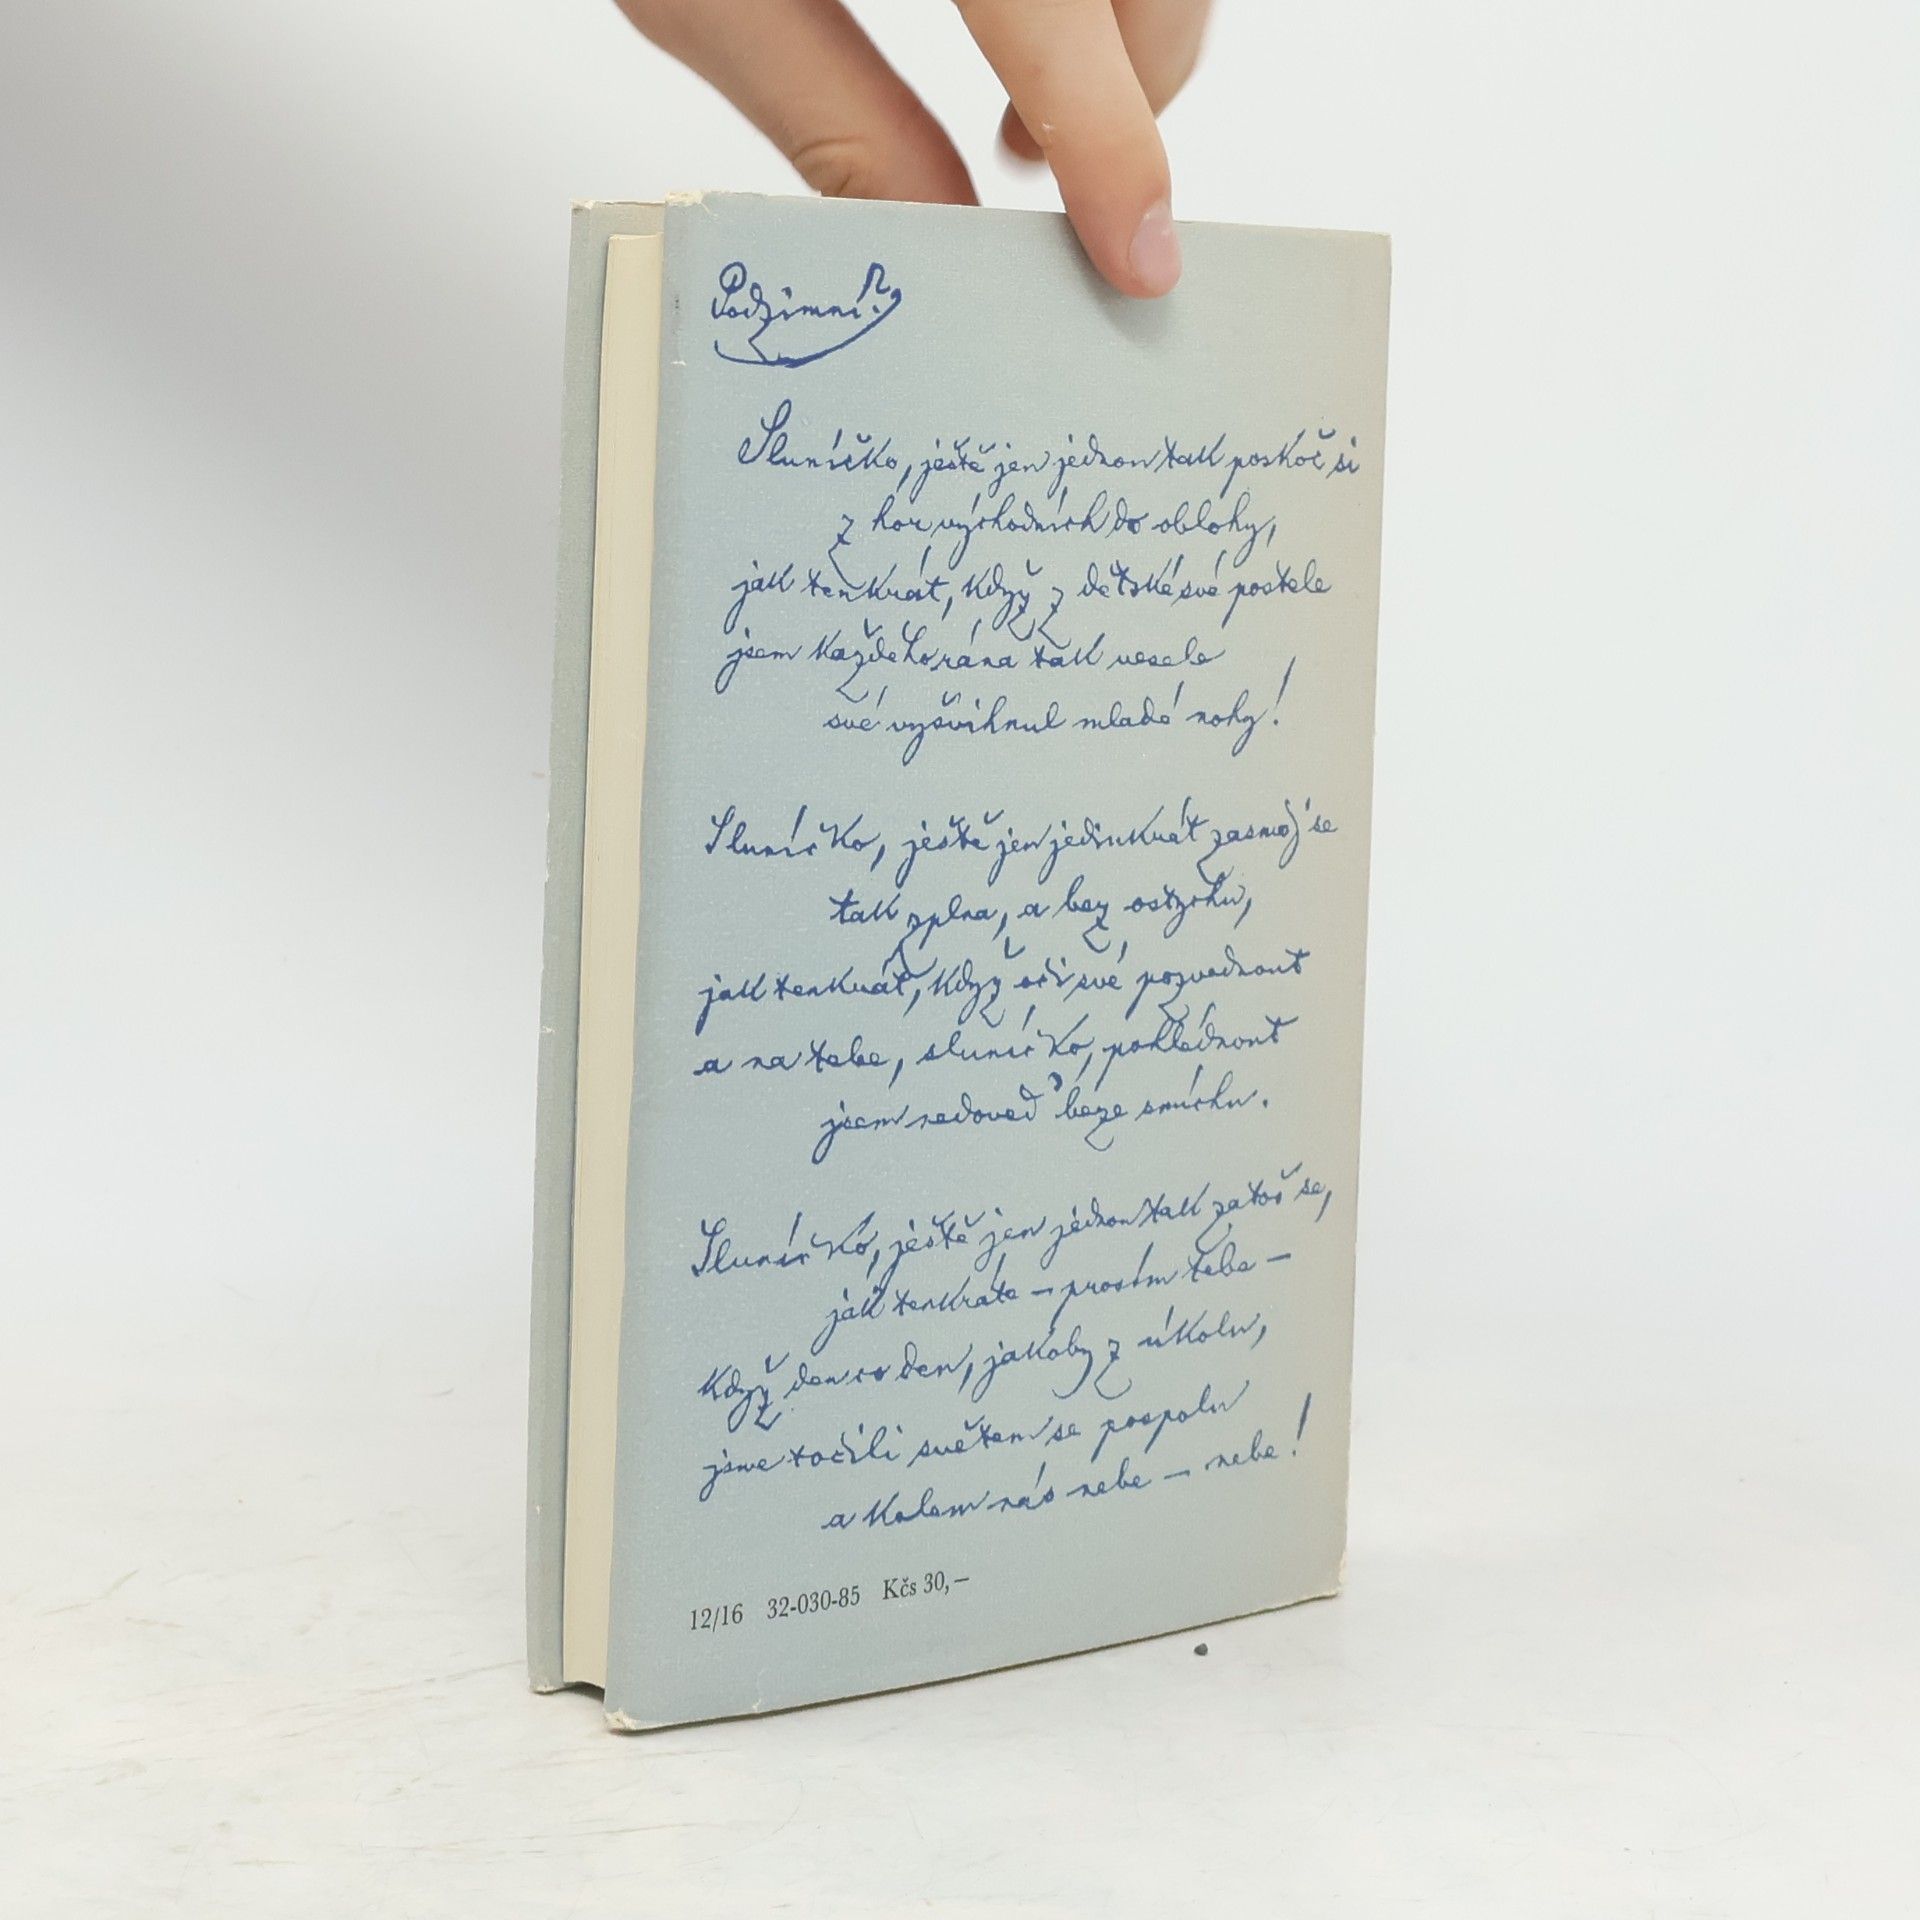 Podzimní?
Sluníčko, ještě jen jednou tak poskoč si
z hor východních do oblohy,
jak tenkrát, když z dětské své postele
jsem každého rána tak vesele
své vyšvihnul mladé nohy!
Sluníčko, ještě jen jedinkrát zasměj se
tak zplna, a bez ostychu,
jak tenkrát, když oči své pozvednout
a na tebe, sluníčko, pohlédnout
jsem nedoved' beze smíchu.
Sluníčko, ještě jen jednou tak zatoč se,
jak tenkráte – prosím tebe –
když den co den, jakoby z úkolu,
jsme točili světem se pospolu
a kolem nás nebe – nebe!
12/16 32-030-85 Kčs 30,–